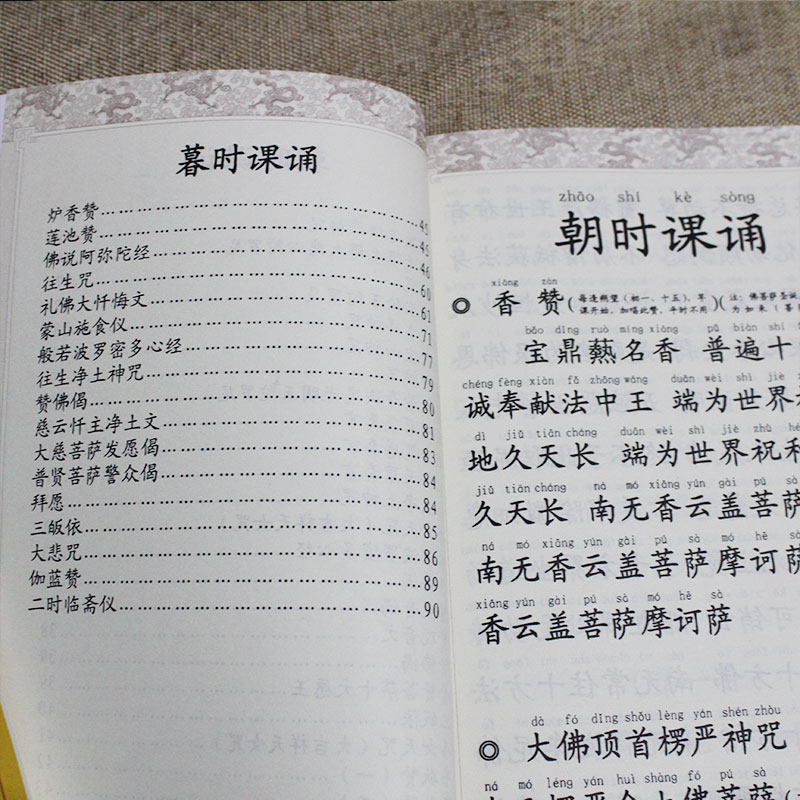 暮时课诵
炉香赞……………………………………45
莲池赞……………………………………45
佛说阿弥陀经……………………………46
往生咒……………………………………60
礼佛大忏悔文……………………………61
蒙山施食仪………………………………71
般若波罗密多心经………………………77
往生净土神咒……………………………79
赞佛偈……………………………………80
慈云忏主净土文…………………………81
大慈菩萨发愿偈…………………………83
普贤菩萨警众偈…………………………84
拜愿………………………………………84
三皈依……………………………………85
大悲咒……………………………………86
伽蓝赞……………………………………89
二时临斋仪………………………………90
zhāo shí kè sòng
朝时课诵
xiāng zàn
◎ 香赞(每逢朔望(初一、十五),早课开始,加唱此赞,平时不用)(注:佛菩萨圣诞
为如来(菩
bǎo dǐng ruò míng xiāng pǔ biàn shí
宝鼎爇名香 普遍十
chéng fèng xiàn fǎ zhōng wáng duān wèi shì jiè
诚奉献法中王 端为世界
dì jiǔ tiān cháng duān wèi shì jiè zhù
地久天长 端为世界祝
jiǔ tiān cháng ná mó xiāng yún gài pú sà
久天长 南无香云盖菩萨
ná mó xiāng yún gài pú sà mó hē sà
南无香云盖菩萨摩诃萨
xiāng yún gài pú sà mó hē sà
香云盖菩萨摩诃萨
dà fó dǐng shǒu léng yán shén zhòu
◎ 大佛顶首楞严神咒
ná mó léng yán huì shàng fó pú sà
南无楞严会上佛菩萨(